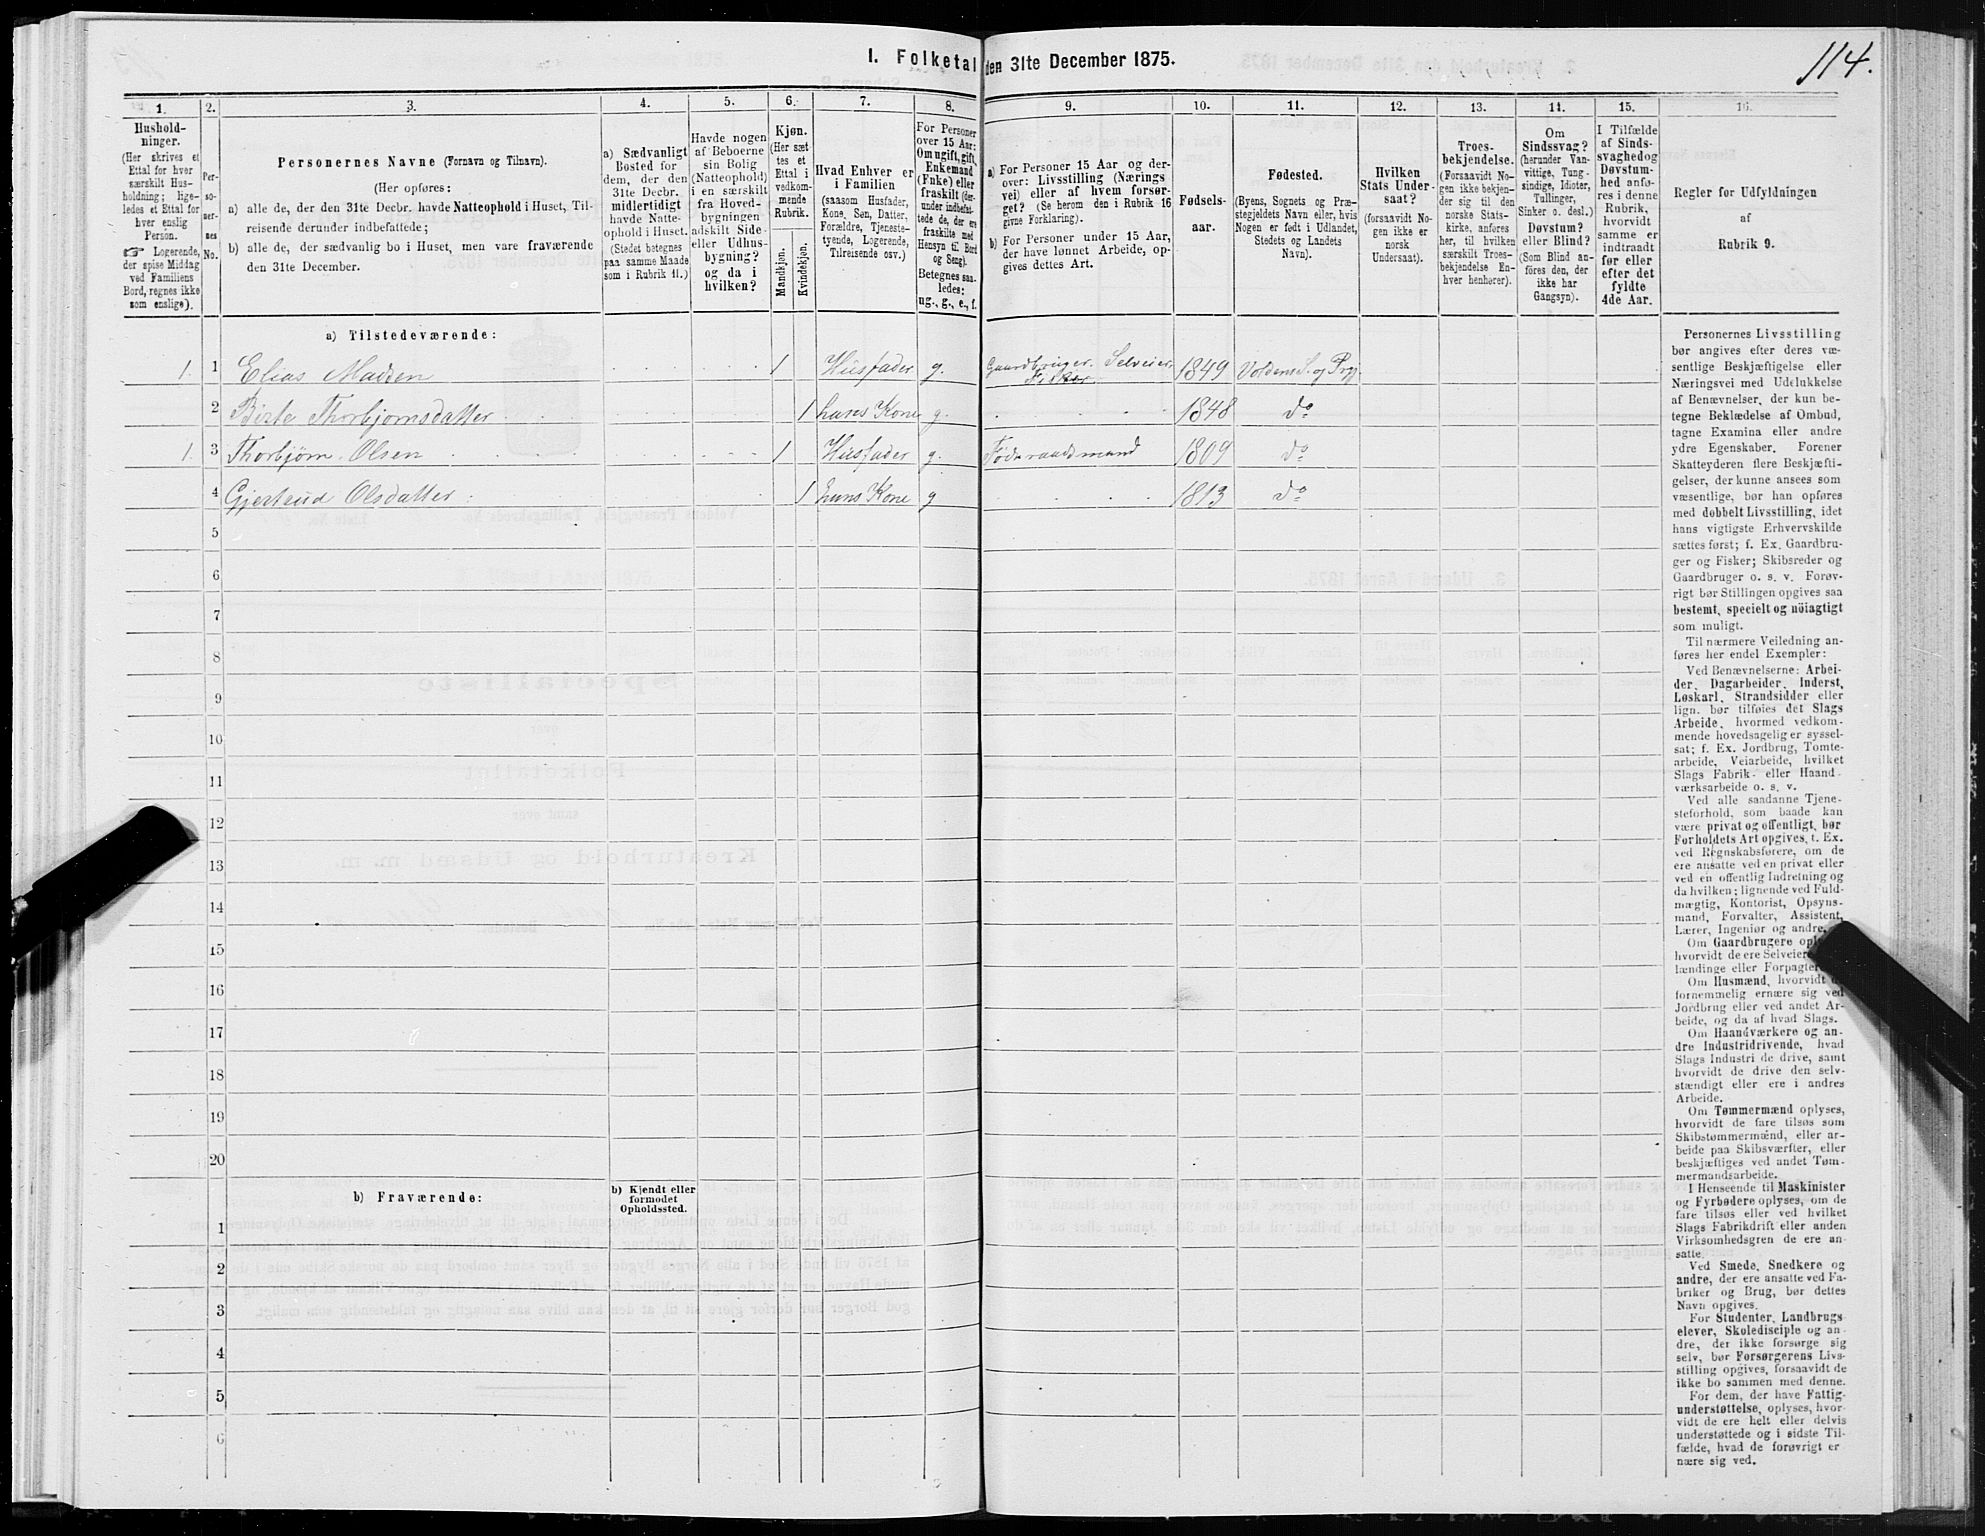 I. Folketal den 31te December 1875.
114.
1. 2. 3. 4. 5. 6. 7. 8. 9. 10. 11. 12. 13. 14. 15. 16.
Hushold-
ninger.
(Her skrives et
Ettal for hver
særskilt Hus-
holdning; lige-
ledes et Ettal for
hver enslig
Person.
☞ Logerende,
der spise Middag
ved Familiens
Bord, regnes ikke
som enslige).
Per-
so-
ner-
nes
No.
Personernes Navne (Fornavn og Tilnavn).
(Her opføres:
a) alle de, der den 31te Decbr. havde Natteophold i Huset, Til-
reisende derunder indbefattede;
b) alle de, der sædvanlig bo i Huset, men vare fraværende
den 31te December.
a) Sædvanligt
Bosted for
dem, der den
31te Decbr.
midlertidigt
havde Natte-
ophold i Huset.
(Stedet betegnes
paa samme Maade
som i Rubrik 11.)
Havde nogen
af Beboerne
sin Bolig
(Natteophold)
i en særskilt
fra Hoved-
bygningen
adskilt Side-
eller Udhus-
bygning?
og da i
hvilken?
Kjøn.
(Her sæt-
tes et
Ettal i
vedkom-
mende
Rubrik.
Mandkjøn.
Kvindekjøn.
Hvad Enhver er
i Familien
(saasom Husfader,
Kone, Søn, Datter,
Forældre, Tjeneste-
tyende, Logerende,
Tilreisende osv.)
For Personer
over 15 Aar:
Om ugift, gift,
Enkemand
(Enke) eller
fraskilt (der-
under indbefat-
tede de, der ere
fraskilte med
Hensyn til Bord
og Seng).
Betegnes saa-
ledes:
ug., g., e., f.
a) For Personer 15 Aar og der-
over: Livsstilling (Nærings-
vei) eller af hvem forsør-
get? (Se herom den i Rubrik 16
givne Forklaring).
b) For Personer under 15 Aar,
der have lønnet Arbeide, op-
gives dettes Art.
Fødsels-
aar.
Fødested.
(Byens, Sognets og Præ-
stegjeldets Navn eller, hvis
Nogen er født i Udlandet,
Stedets og Landets
Navn).
Hvilken
Stats Under-
saat?
(forsaavidt No-
gen ikke er
norsk
Undersaat).
Troes-
bekjendelse.
(Forsaavidt No-
gen ikke bekjen-
der sig til den
norske Stats-
kirke, anføres
her, til hvilken
særskilt Troes-
bekjendelse En-
hver henhører).
Om
Sindssvag?
(herunder Van-
vittige, Tung-
sindige, Idioter,
Tullinger,
Sinker o. desl.)
Døvstum?
eller Blind?
(Som Blind an-
føres den, der
ikke har
Gangsyn).
I Tilfælde
af Sinds-
svaghed og
Døvstum-
hed anfø-
res i denne
Rubrik,
hvorvidt
samme er
indtraadt
før eller
efter det
fyldte
4de Aar.
Regler for Udfyldningen
af
Rubrik 9.
a) Tilstedeværende:
1. 1 Elias Madsen 1 Husfader g. Gaardbruger. Selveier, Fisker 1849 Voldens S. og Prgj.
2 Birte Thorbjornsdatter 1 hans Kone g. 1848 do
1. 3 Thorbjørn Olsen 1 Husfader g. Føderaadsmand 1809 do
4 Gjertrud Olsdatter 1 hans Kone g 1813 do
5
6
7
8
9
10
11
12
13
14
15
16
17
18
19
20
b) Fraværende:
b) Kjendt eller
formodet
Opholdssted.
1
2
3
4
5
6
Personernes Livsstilling
bør angives efter deres væ-
sentlige Beskjæftigelse eller
Næringsvei med Udelukkelse
af Benævnelser, der kun be-
tegne Beklædelse af Ombud,
tagne Examina eller andre
ydre Egenskaber. Forener
Skatteyderen flere Beskjæfti-
gelser, der kunne ansees som
væsentlige, bør han opføres
med dobbelt Livsstilling, idet
hans vigtigste Erhvervskilde
sættes først; f. Ex. Gaardbru-
ger og Fisker; Skibsreder og
Gaardbruger o. s. v. Forøv-
rigt bør Stillingen opgives saa
bestemt, specielt og nöiagtigt
som muligt.
Til nærmere Veiledning an-
føres her endel Exempler:
Ved Benævnelserne: Arbei-
der, Dagarbeider, Inderst,
Løskarl, Strandsidder eller
lign. bør tilføies det Slags
Arbeide, hvormed vedkom-
mende hovedsagelig er syssel-
sat; f. Ex. Jordbrug, Tomte-
arbeide, Veiarbeide, hvilket
Slags Fabrik- eller Haand-
værksarbeide o. s. v.
Ved alle saadanne Tjene-
steforhold, som baade kan
være privat og offentligt, bør
Forholdets Art opgives, f. Ex.
ved Regnskabsførere, om de
ere ansatte ved en privat eller
ved en offentlig Indretning og
da hvilken; lignende ved Fuld-
mægtig, Kontorist, Opsyns-
mand, Forvalter, Assistent,
Lærer, Ingeniør og andre.
Om Gaardbrugere
hvorvidt de ere Selveiere,
lændinge eller Forpagtere
Om Husmænd, hvorvidt
fornemmelig ernære sig ved
Jordbrug eller ved andet Ar-
beide, og da af hvad Slags.
Om Haandværkere og an-
dre Industridrivende, hvad
Slags Industri de drive, samt
hvorvidt de drive den selv-
stændigt eller ere i andres
Arbeide.
Om Tømmermænd oplyses,
hvorvidt de fare tilsøs som
Skibstømmermænd, eller ar-
beide paa Skibsværfter, eller
beskjæftiges ved andet Tøm-
mermandsarbeide.
I Henseende til Maskinister
og Fyrbødere oplyses, om de
fare tilsøs eller ved hvilket
Slags Fabrikdrift eller anden
Virksomhedsgren de ere an-
satte.
Ved Smede, Snedkere og
andre, der ere ansatte ved Fa-
briker og Brug, bør dettes
Navn opgives.
For Studenter, Landbrugs-
elever, Skoledisciple og an-
dre, der ikke forsørge sig
selv, bør Forsørgerens Livs-
stilling opgives, forsaavidt de
ikke bo sammen med denne.
For dem, der have Fattig-
understøttelse, oplyses, hvor-
vidt de ere helt eller delvis
understøttede og i sidste Til-
fælde, hvad de forøvrigt er
nære sig ved.